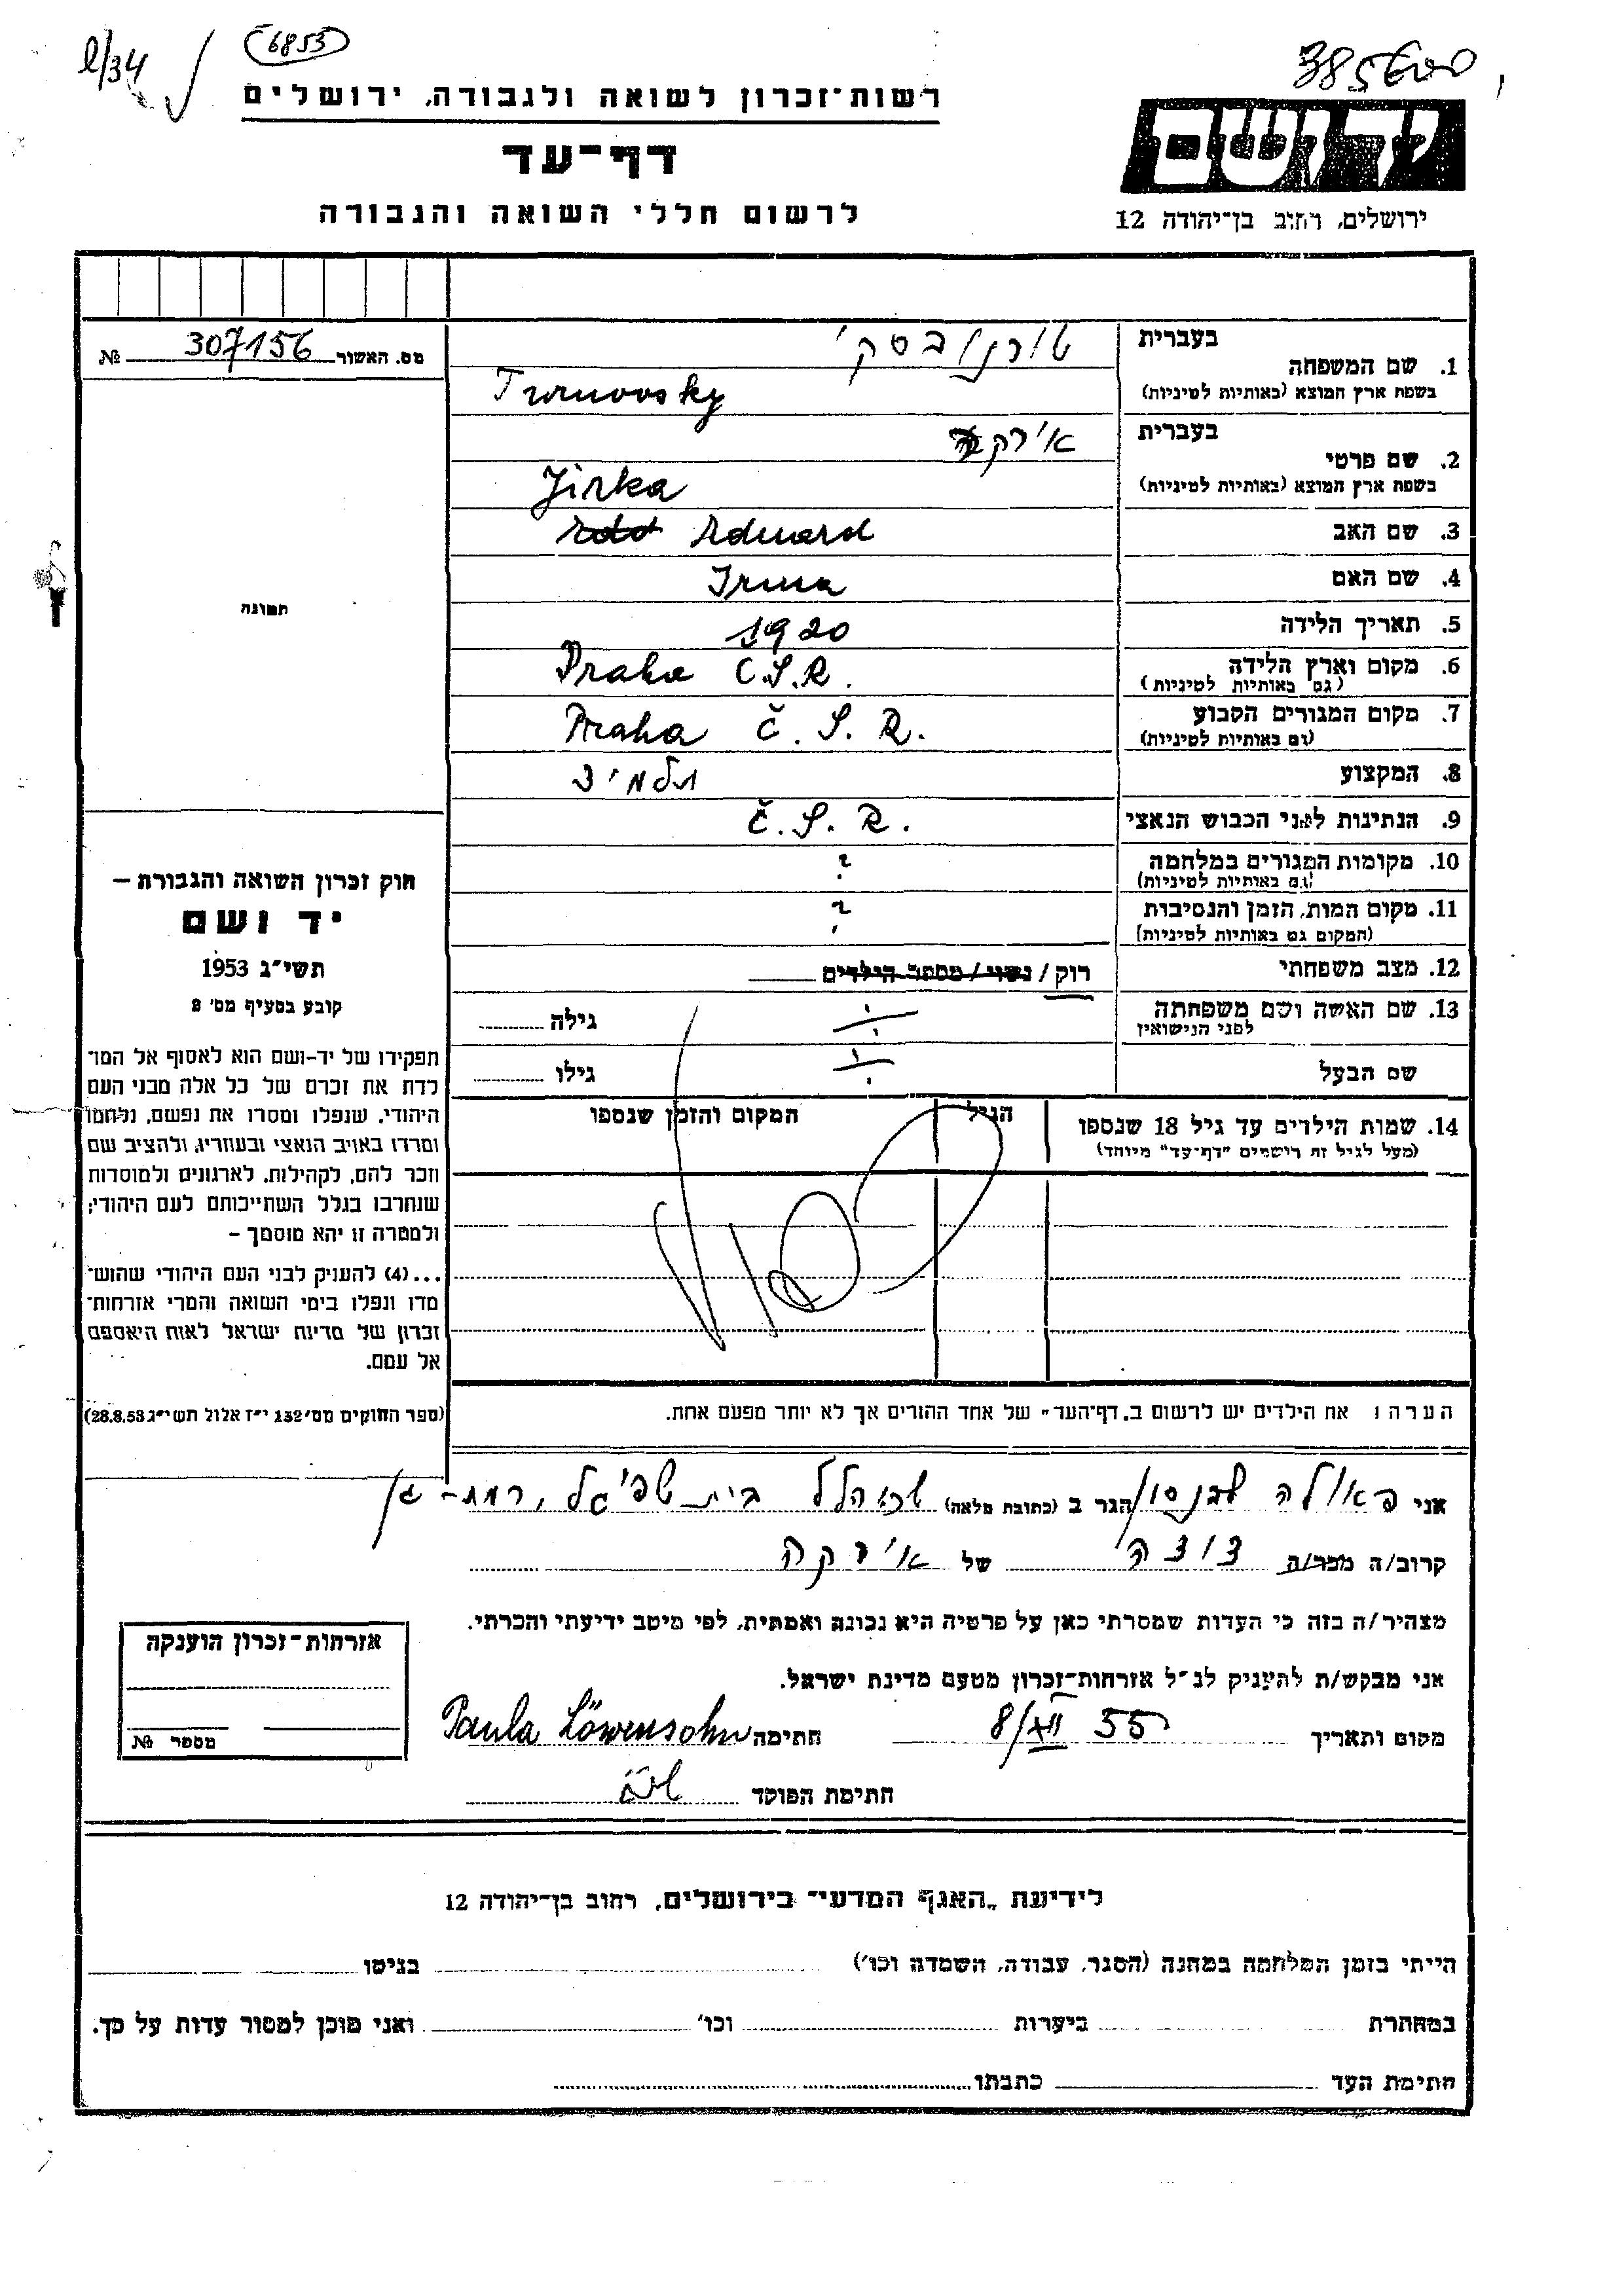 l/34
6853
385600
רשות־זכרון לשואה ולגבורה, ירושלים
דף־עד
לרשום חללי השואה והגבורה
ידושם
ירושלים, רחוב בן־יהודה 12
מס. האשור 307156 №
תמונה
חוק זכרון השואה והגבורה –
יד ושם
תשי״ג 1953
קובע בסעיף מס׳ 2
תפקידו של יד-ושם הוא לאסוף אל המו־
לדת את זכרם של כל אלה מבני העם
היהודי, שנפלו ומסרו את נפשם, נלחמו
ומרדו באויב הנאצי ובעוזריו, ולהציב שם
וזכר להם, לקהילות, לארגונים ולמוסדות
שנחרבו בגלל השתייכותם לעם היהודי;
ולמטרה זו יהא מוסמך –
...(4) להעניק לבני העם היהודי שהוש־
מדו ונפלו בימי השואה והמרי אזרחות־
זכרון של מדינת ישראל לאות היאספם
אל עמם.
(ספר החוקים מס׳ 132 י״ז אלול תשי״ג 28.8.53)
בעברית טורנובסקי
1. שם המשפחה
בשפת ארץ המוצא (באותיות לטיניות) Turnovsky
בעברית אירקה
2. שם פרטי
בשפת ארץ המוצא (באותיות לטיניות) Jirka
3. שם האב Eduard
4. שם האם Irma
5. תאריך הלידה 1920
6. מקום וארץ הלידה Praha Č.S.R.
(גם באותיות לטיניות)
7. מקום המגורים הקבוע Praha Č.S.R.
(גם באותיות לטיניות)
8. המקצוע תלמיד
9. הנתינות לפני הכבוש הנאצי Č.S.R.
10. מקומות המגורים במלחמה ?
(גם באותיות לטיניות)
11. מקום המות, הזמן והנסיבות ?
(המקום גם באותיות לטיניות)
12. מצב משפחתי רווק / נשוי / מספר הילדים
13. שם האשה ושם משפחתה גילה
לפני הנישואין
שם הבעל גילו
14. שמות הילדים עד גיל 18 שנספו הגיל המקום והזמן שנספו
(מעל לגיל זה רישמים "דף־עד" מיוחד)
הערה: את הילדים יש לרשום ב„דף־העד" של אחד ההורים אך לא יותר מפעם אחת.
אני פאולה לבנסון הגר ב (כתובת מלאה) שכ' הלל בית שפיגל, רמת-גן
קרוב/ה מכר/ה דודה של אירקה
מצהיר/ה בזה כי העדות שמסרתי כאן על פרטיה היא נכונה ואמתית, לפי מיטב ידיעתי והכרתי.
אני מבקש/ת להעניק לנ״ל אזרחות־זכרון מטעם מדינת ישראל.
מקום ותאריך 8/XII 55 חתימה Paula Löwensohn
חתימת הפוקד
אזרחות־זכרון הוענקה
מספר №
לידיעת „האגף המדעי" בירושלים, רחוב בן־יהודה 12
הייתי בזמן המלחמה במחנה (הסגר, עבודה, השמדה וכו׳) בגיטו
במחתרת ביערות וכו׳ ואני מוכן למסור עדות על כך.
חתימת העד כתבתו